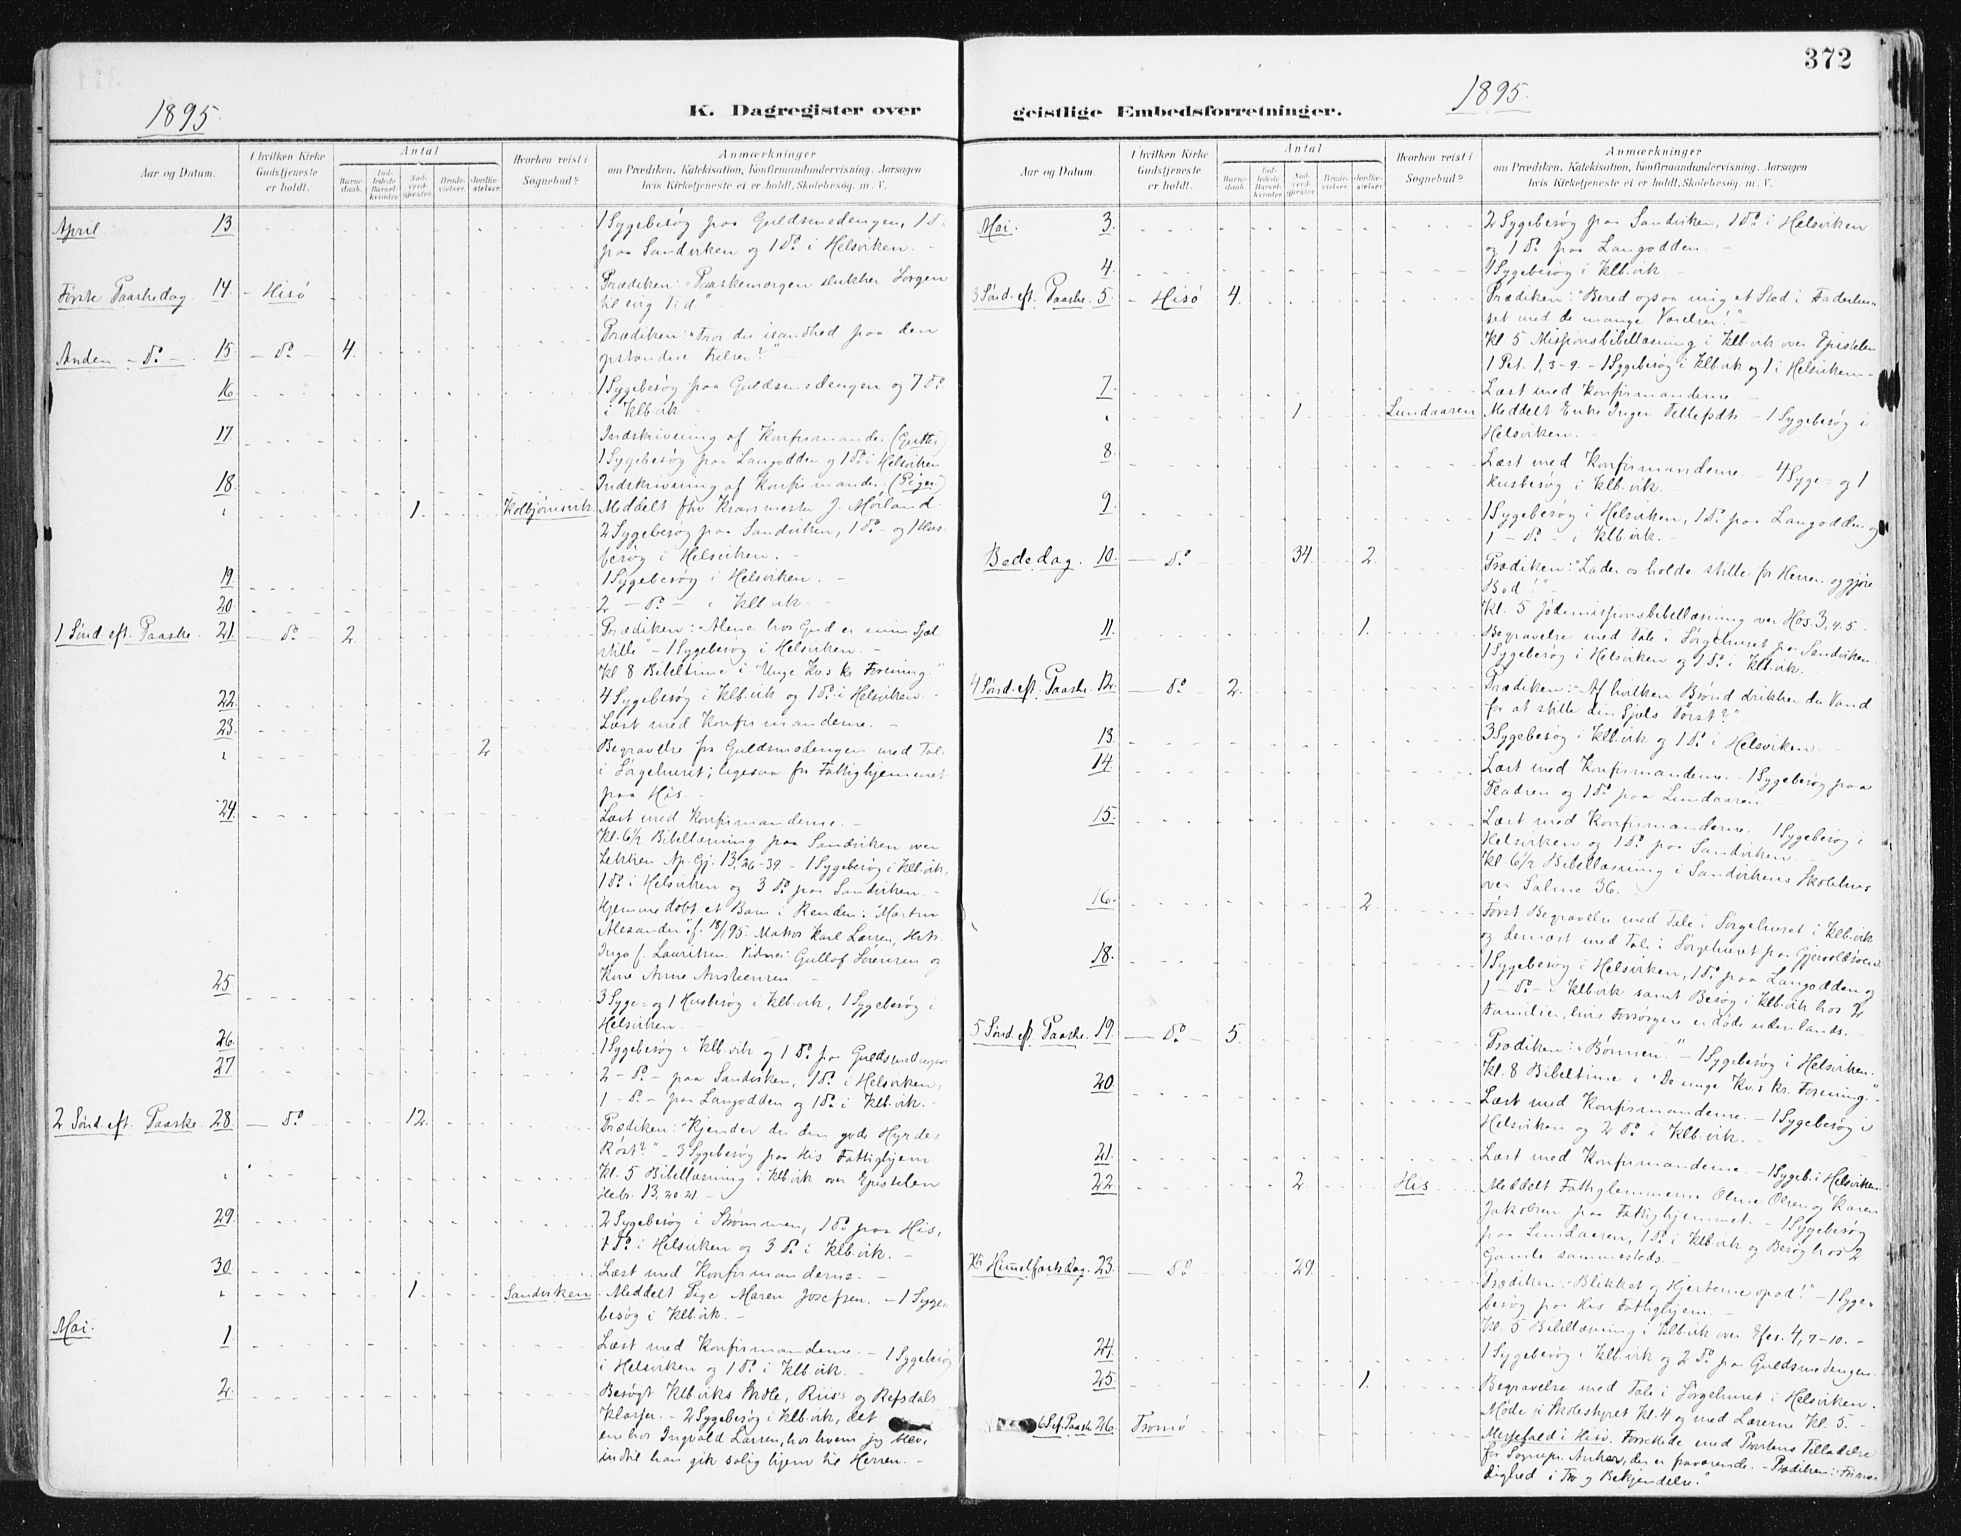 372
1895.
K. Dagregister over
geistlige Embedsforretninger.
1895.
Aar og Datum.
I hvilken Kirke Gudstjeneste er holdt.
Antal
Barnedaab.
Indledede Barselkvinder.
Nadverdgjester.
Brudevielser.
Jordfæstelser.
Hvorhen reist i Sognebud?
Anmærkninger
om Prædiken, Katekisation, Konfirmandundervisning, Aarsagen
hvis Kirketjeneste ei er holdt, Skolebesøg, m. V.
April 13 1 Sygebesøg paa Guldsmedengen, 1 Do
paa Sandviken og 1 Do i Helsviken. -
Første Paaskedag 14. - Hisø Prædiken: "Paaskemorgen slukker Sorgen
til evig Tid" -
Anden - Do - 15. - Do - 4. Prædiken: "Tror du i sandhed paa den
opstandne Frelser?"
16 1 Sygebesøg paa Guldsmedengen og 7 Do
i Klb.vik.
17 Indskrivning af Konfirmander (Gutter)
1 Sygebesøg paa Langodden og 1 Do i Helsviken
18 Indskrivning af Konfirmander (Piger)
" 1. Kolbjørnsvik Meddelt fhv J. Mørland.
2 Sygebesøg paa Sandviken, 1 Do - og 1 Hus-
besøg i Helsviken. -
19 1 Sygebesøg i Helsviken. -
20 2 - Do - i Klb.vik. -
1 Sønd. eft. Paaske. 21 - Do - 2. Prædiken: "Alene hos Gud er min Sjæl
stille" - 1 Sygebesøg i Helsviken. -
Kl 8 Bibeltime i "Unge Kv.s kr. Forening."
22 4 Sygebesøg i Klb.vik og 1 Do i Helsviken. -
23. Læst med Konfirmanderne. -
" 2 Begravelse fra Guldsmedengen med Tale
i Sørgehuset; ligesaa fra Fattighjemmet
paa His. -
24. Læst med Konfirmanderne. -
Kl. 6½ Bibellæsning paa Sandviken over
Lektien Ap. Gj. 13, 26-39 - 1 Sygebesøg i Klb.vik,
1 Do i Helsviken og 3 Do paa Sandviken. -
Hjemmedøbt et Barn i Renden: "Martin
Alexander", f. 18/1 95. Matros Karl Larsen, Hst.
Inga f. Lauritsen. Vidner: Gullof Sørensen og
Kone Anne Anstensen -
25 3 Syge- og 1 Husbesøg i Klb.vik, 1 Sygebesøg i
Helsviken. -
26. 1 Sygebesøg i Klb.vik og 1 Do paa Guldsmedengen
27 2 - Do - paa Sandviken, 1 Do i Helsviken,
1 - Do - paa Langodden og 1 Do i Klb.vik. -
2 Sønd. eft. Paaske. 28 - Do 12. Prædiken: "Kjender du den gode Hyrdes
Røst?" - 3 Sygebesøg paa His Fattighjem.
Kl. 5 Bibellæsning i Klb.vik over Epistelen
Hebr. 13, 20-21 -
29. 2 Sygebesøg i Strømmen, 1 Do paa His,
1 Do i Helsviken og 3 Do i Klb.vik. -
30 Læst med Konfirmanderne. -
" 1 Sandviken - Meddelt Pige Maren Josefsen. - 1 Syge-
besøg i Klb.vik. -
Mai. 1 Læst med Konfirmanderne. - 1 Sygebesøg
i Helsviken og 1 Do i Klb.vik. -
2. Besøgt Klb.viks Skole, Riis's og Refsdals
Klasser. - 2 Sygebesøg i Klb.vik, det
ene hos Ingvald Larsen, hos hvem jeg blev,
indtil han gik salig hjem til Herren. -
Aar og Datum.
I hvilken Kirke Gudstjeneste er holdt.
Antal
Barnedaab.
Indledede Barselkvinder.
Nadverdgjester.
Brudevielser.
Jordfæstelser.
Hvorhen reist i Sognebud?
Anmærkninger
om Prædiken, Katekisation, Konfirmandundervisning, Aarsagen
hvis Kirketjeneste ei er holdt, Skolebesøg, m. V.
Mai. 3. 2 Sygebesøg paa Sandviken, 1 Do i Helsviken
og 1 Do paa Langodden. -
4. 1 Sygebesøg i Klb.vik. -
3 Sønd. eft. Paaske. 5 - Hisø 4. Prædiken: "Bered ogsaa mig et Sted i Faderhu-
set med de mange Værelser!" -
Kl. 5 Missionsbibellæsning i Klb.vik over Epistelen
1 Pet. 1, 3-9. - 1 Sygebesøg i Klb.vik og 1 i Helsviken -
7. Læst med Konfirmanderne. -
" 1 Lundaaren Meddelt Enke Inger - 1 Sygebesøg i
Helsviken. -
8. Læst med Konfirmanderne. - 4 Syge- og 1
Husbesøg i Klb.vik. -
9. 1 Sygebesøg i Helsviken, 1 Do paa Langodden og
1 - Do - i Klb.vik. -
Bededag. 10. - Do 34. 2. Prædiken: "Lader os holde stille for Herren og gjøre
Bod!" -
Kl. 5 Jødemissionsbibellæsning over Hos. 3, 4.5 -
11. 1. Begravelse med Tale i Sørgehuset paa Sandviken.
1 Sygebesøg i Helsviken og 1 Do i Klb.vik.
4 Sønd. eft. Paaske. 12. - Do - 2. Prædiken: "Af hvilken Brønd drikker du Vand
for at stille din Sjæls Tørst?"
13. 3 Sygebesøg i Klb.vik og 1 Do i Helsviken. -
14. Læst med Konfirmanderne. - 1 Sygebesøg paa
Fladen og 1 Do paa Lundaaren. -
15. Læst med Konfirmanderne. - 1 Sygebesøg i
Helsviken og 1 Do paa Sandviken. -
Kl. 6½ Bibellæsning i Sandvikens Skolehus
over Salme 36.
16. 2. Først Begravelse med Tale i Sørgehuset i Klb.vik
og dernæst med Tale i Sørgehuset paa
18. 1 Sygebesøg i Helsviken, 1 Do paa Langodden og
1 - Do - i Klb.vik samt Besøg i Klb.vik hos 2
Familier, hvis Forsørgere er døde udenlands. -
5 Sønd. eft. Paaske. 19. - Do - 5. Prædiken: "Bønnen." - 1 Sygebesøg i Helsviken.
Kl. 8 Bibeltime i "De unge Kv.s kr. Forening." -
20. Læst med Konfirmanderne. - 1 Sygebesøg i
Helsviken og 2 Do i Klb.vik. -
21. Læst med Konfirmanderne. - 1 Sygeb. i Helsviken.
22. 2. His Meddelt Fattiglemmerne Olsen og Karen
Jakobsen paa Fattighjemmet. - 1 Sygebesøg
paa Lundaaren, 1 Do i Klb.vik og Besøg hos 2
Gamle sammesteds. -
Kr. Himmelfartsdag. 23. - Do 29. Prædiken: "Blikket og Hjerterne opad!" - 1 Syge-
besøg paa His Fattighjem. -
Kl. 5 Bibellæsning i Klb.vik over Efes. 4, 7-10. -
24. 1 Sygebesøg i Klb.vik og 2 Do paa Guldsmedengen.
25. 1. Begravelse med Tale i Sørgehuset i Helsviken.
Møde i Skolestyret Kl. 4 og med Lærerne Kl. 5. -
6 S. ef. Paaske 26. Tromø Messefald i Hisø. med Provstens Tilladelse
for Sognepr. , der er fraværende. - Prædiken: "Frimo-
dighed i Tro og Bekjendelse."